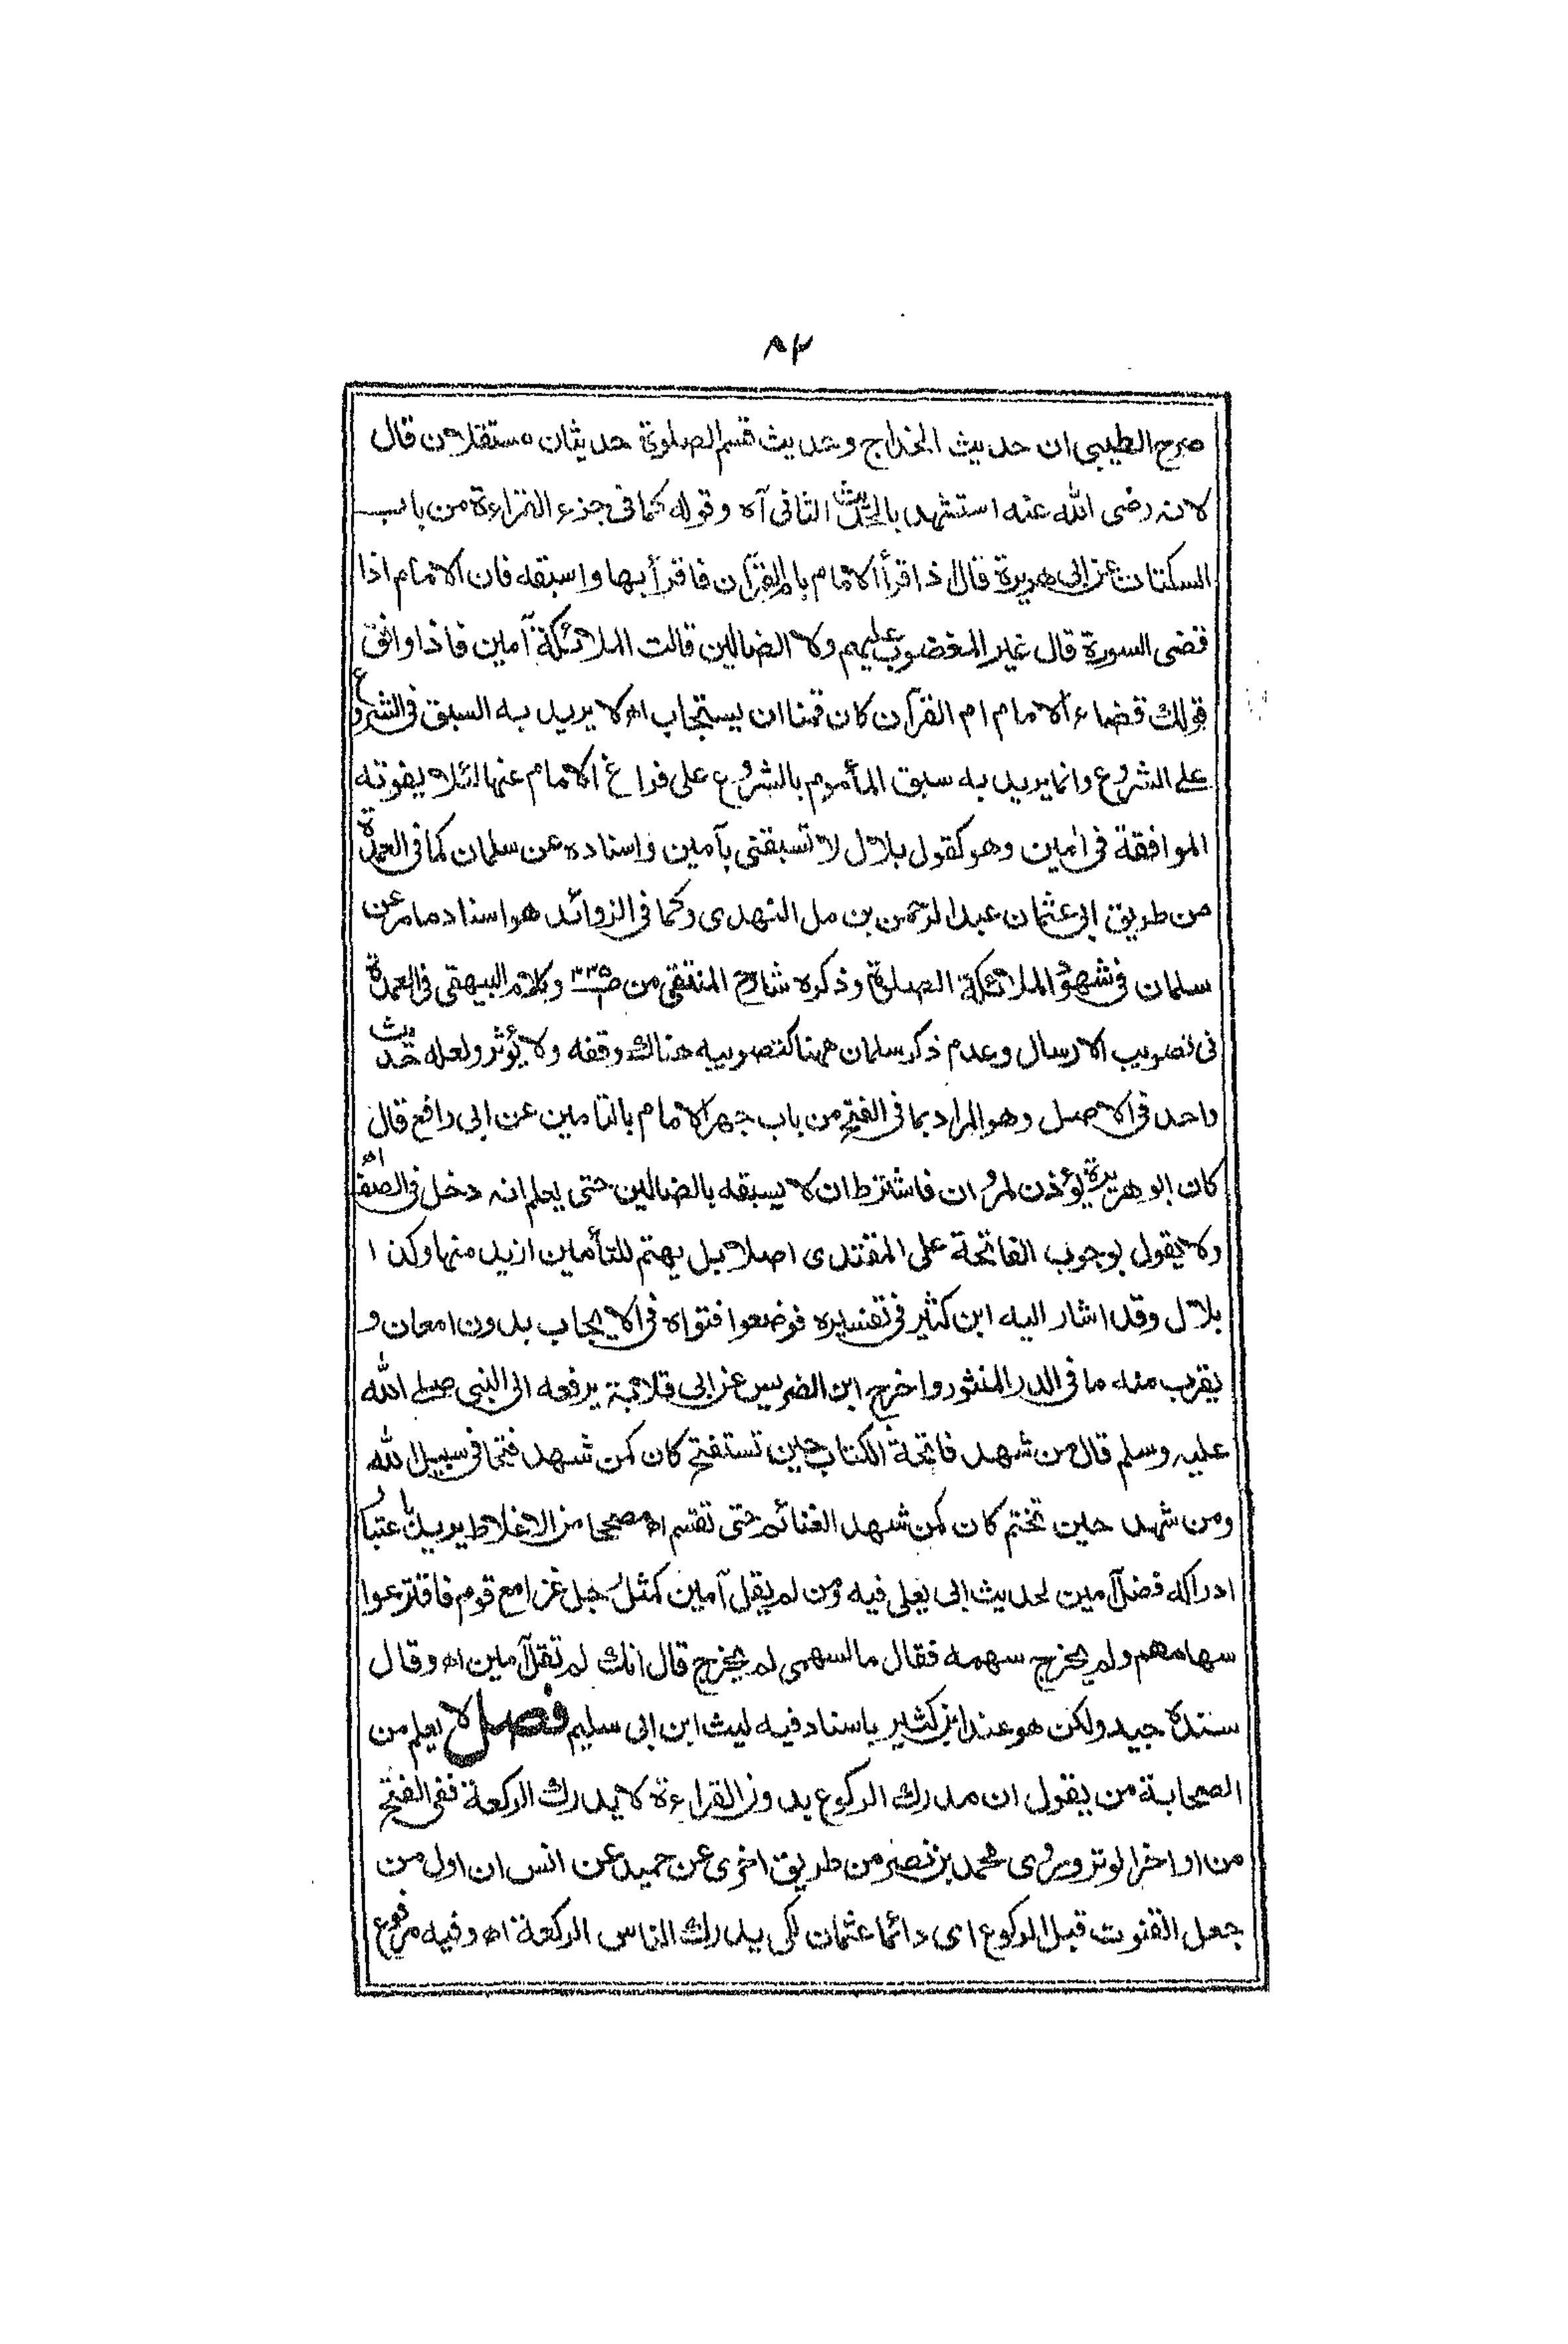 ٨٢
صرح الطيبى ان حديث الخداج وحديث قسم الصلوة حديثان مستقلان قال
لانه رضى الله عنه استشهد بالحديث الثانى آه وقوله كما فى جزء القراءة من باب
السكتات عن ابى هريرة قال اذا قرأ الامام بام القرآن فاقرأ بها واسبقه فان الامام اذا
قضى السورة قال غير المغضوب عليهم ولا الضالين قالت الملائكة آمين فاذا وافق
قولك قضاء الامام ام القرآن كان قمنا ان يستجاب اه لا يريد به السبق فى الشروع
على الشروع وانما يريد به سبق المأموم بالشروع على فراغ الامام عنها لئلا يفوته
الموافقة فى آمين وهو كقول بلال لا تسبقنى بآمين واسناده عن سلمان كما فى العمدة
من طريق ابى عثمان عبد الرحمن بن مل النهدى وكما فى الزوائد هو اسناد ما مر عن
سلمان فى شهود الملائكة الصلوة وذكره شارح المنتقى من ص٣٣٥ وكلام البيهقى فى العمدة
فى تصويب الارسال وعدم ذكر سلمان ههنا كتصويبه هناك وقفه ولا يؤثر ولعله حديث
واحد فى الاصل وهو المراد بما فى الفتح من باب جهر الامام بالتامين عن ابى رافع قال
كان ابو هريرة يؤذن لمروان فاشترط ان لا يسبقه بالضالين حتى يعلم انه دخل فى الصف اه
ولا يقول بوجوب الفاتحة على المقتدى اصلا بل يهتم للتأمين ازيد منها وكذا
بلال وقد اشار اليه ابن كثير فى تفسيره فوضعوا فتواه فى الايجاب بدون امعان و
يقرب منه ما فى الدر المنثور واخرج ابن الضريس عن ابى قلابة يرفعه الى النبى صلى الله
عليه وسلم قال من شهد فاتحة الكتاب حين تستفتح كان كمن شهد فتحا فى سبيل الله
ومن شهد حين تختم كان كمن شهد الغنائم حتى تقسم اه مصححا من الاغلاط يريد باعتبار
ادراكه فضل آمين لحديث ابى يعلى فيه ومن لم يقل آمين كمثل رجل غزا مع قوم فاقترعوا
سهامهم ولم يخرج سهمه فقال ما لسهمى لم يخرج قال انك لم تقل آمين اه وقال
سنده جيد ولكن هو عند ابن كثير باسناد فيه ليث ابن ابى سليم فصل لا يعلم من
الصحابة من يقول ان مدرك الركوع بدون القراءة لا يدرك الركعة ففى الفتح
من اواخر الوتر وروى محمد بن نصر من طريق اخرى عن حميد عن انس ان اول من
جعل القنوت قبل الركوع اى دائما عثمان لكى يدرك الناس الركعة اه وفيه مرفوع